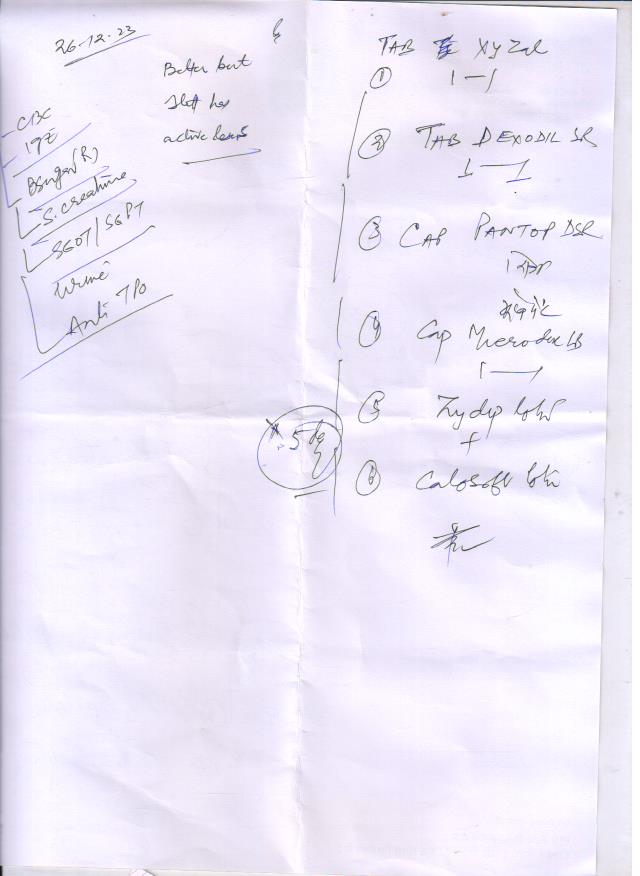 26-12-23
Better but
still has
active lesions
CBC
IgE
Bsugar (R)
S. creatinine
SGOT/SGPT
Urine
Anti TPO
TAB XyZal
① 1—1
② TAB DEXODIL SR
1—1
③ CAP PANTOP DSR
④ Cap
1—
⑤ Zydip lotn
+
⑥ Calosoft lotn
5 day